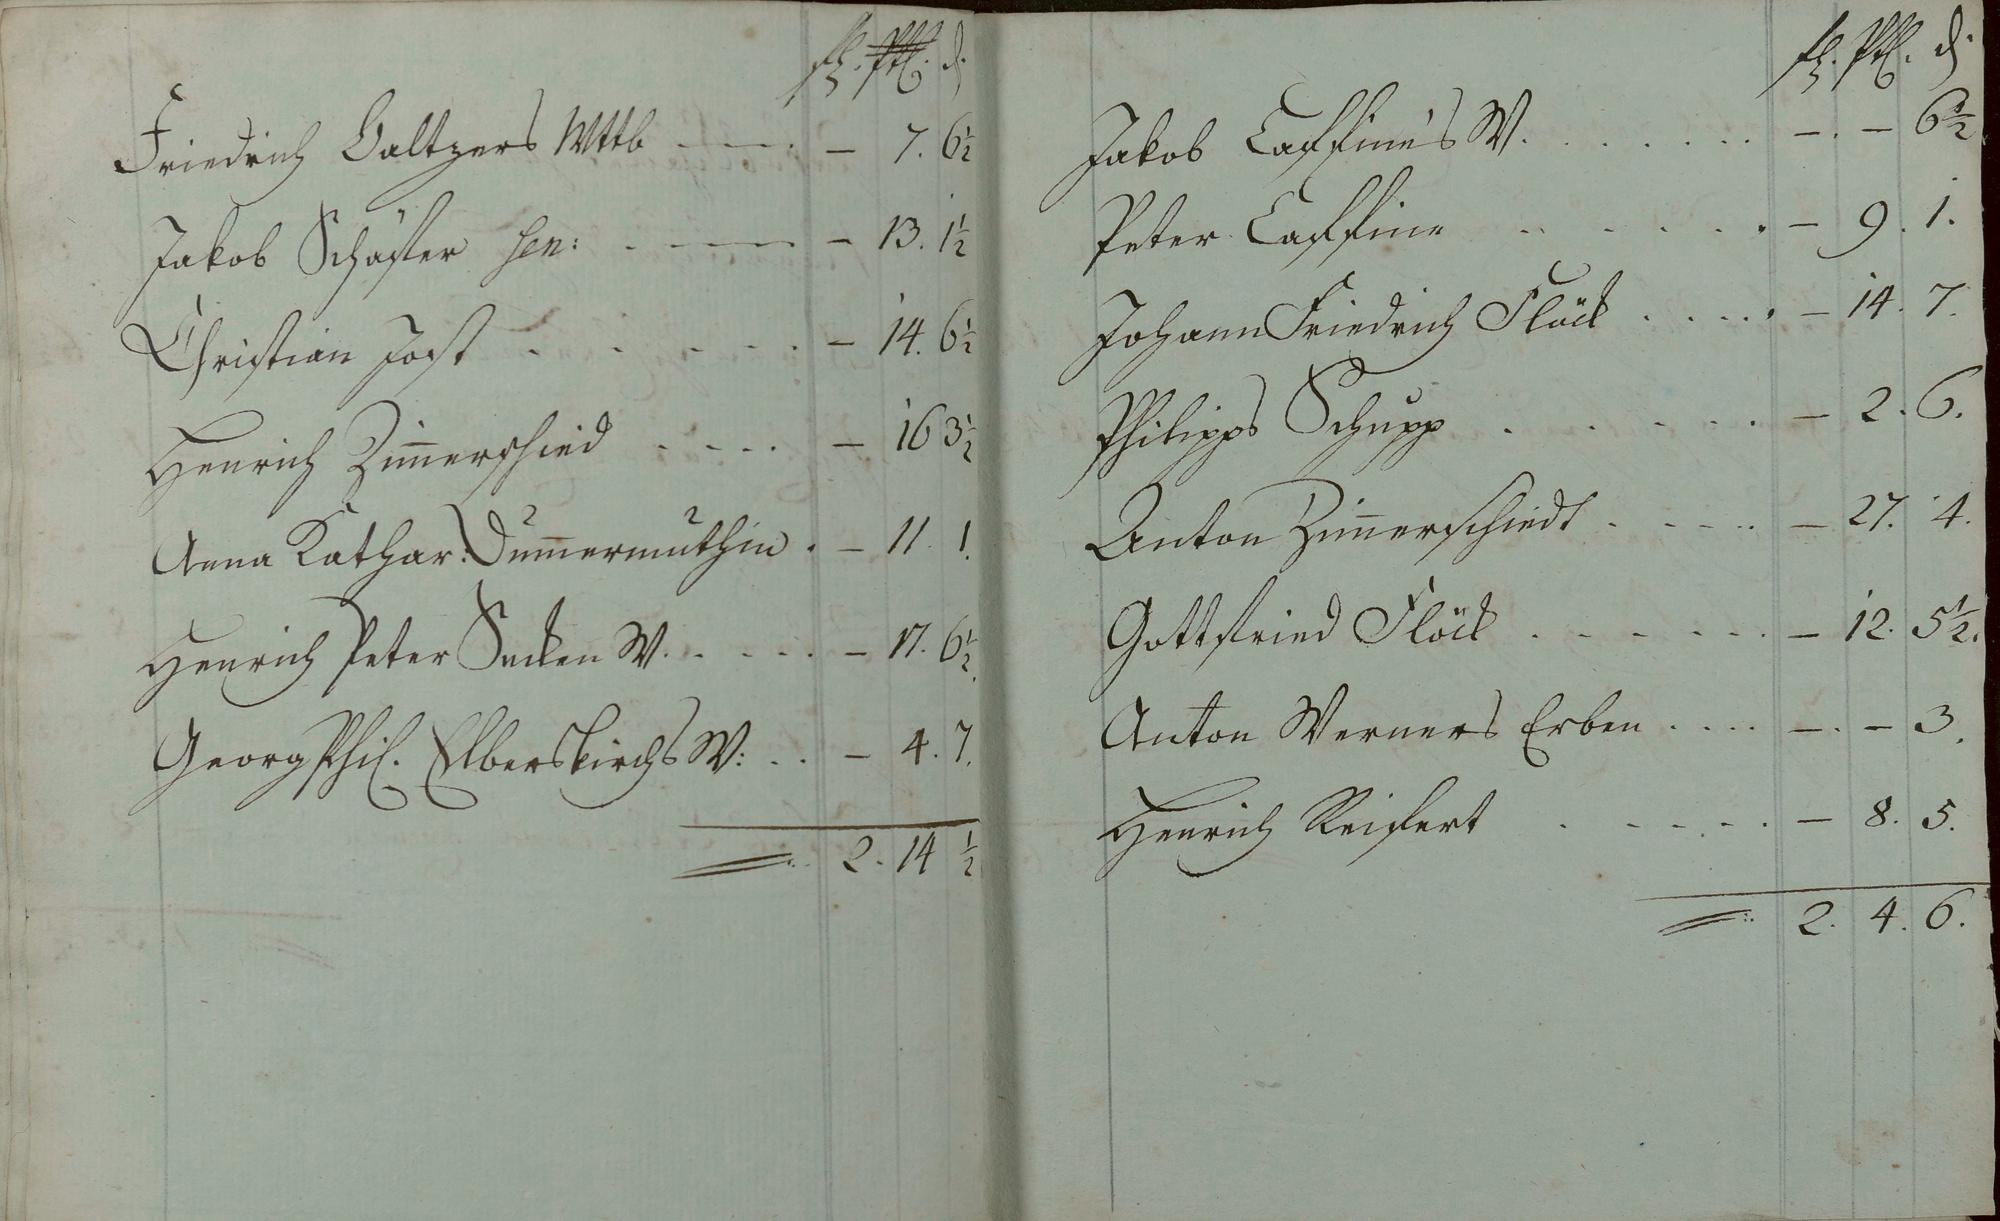 fl. Ptz. d.
Friedrich Baltzers Wttb - - - - . - 7. 6½
Jakob Schäffer sen: . - - - - - 13. 1½
Christian Jost - - - - - - - 14. 6½
Henrich Zim̅erschied - - - - - 16 3½
Anna Kathar: Dum̅ermuthin . - 11. 1.
Henrich Peter Sucken W. . . . . - 17. 6½.
Georg Phil. Elberskirchs W: . . - 4. 7.
2. 14 ½
fl. Ptz. d.
Jakob Caffine's W. . . . . . . . -. - 6½
Peter Caffine . . . . . . - 9. 1.
Johann Friedrich Flöck . . . . . - 14. 7.
Philipps Schupp . . . . . . - 2. 6.
Anton Zim̅erschiedt . - - - - - 27. 4.
Gottfried Flöck . - - - - . - 12. 5½.
Anton Werners Erben . . . . -. - 3.
Henrich Reiffert . - - - - . - 8. 5.
2. 4. 6.